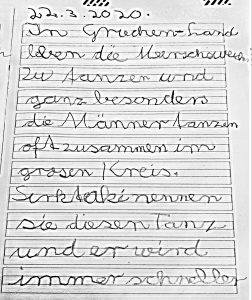 22.3.2020.
In Griechen-land
leben die Menschen
zu tanzen und
ganz besonders
die Männer tanzen
oft zusammen im
grosen Kreis.
Sirktaki nennen
sie diesen Tanz
und er wird
immer schneller